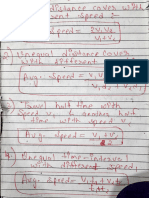 distance cover with
different speed :-
Speed = 2V₁V₂
V₁+V₂
2) Unequal distance cover
with different speed,
Avg. Speed =
half time with
speed V₁ & another half
time with speed V₂
Avg. Speed = V₁+V₂
4) Unequal time interval
with different speed,
Avg. Speed =